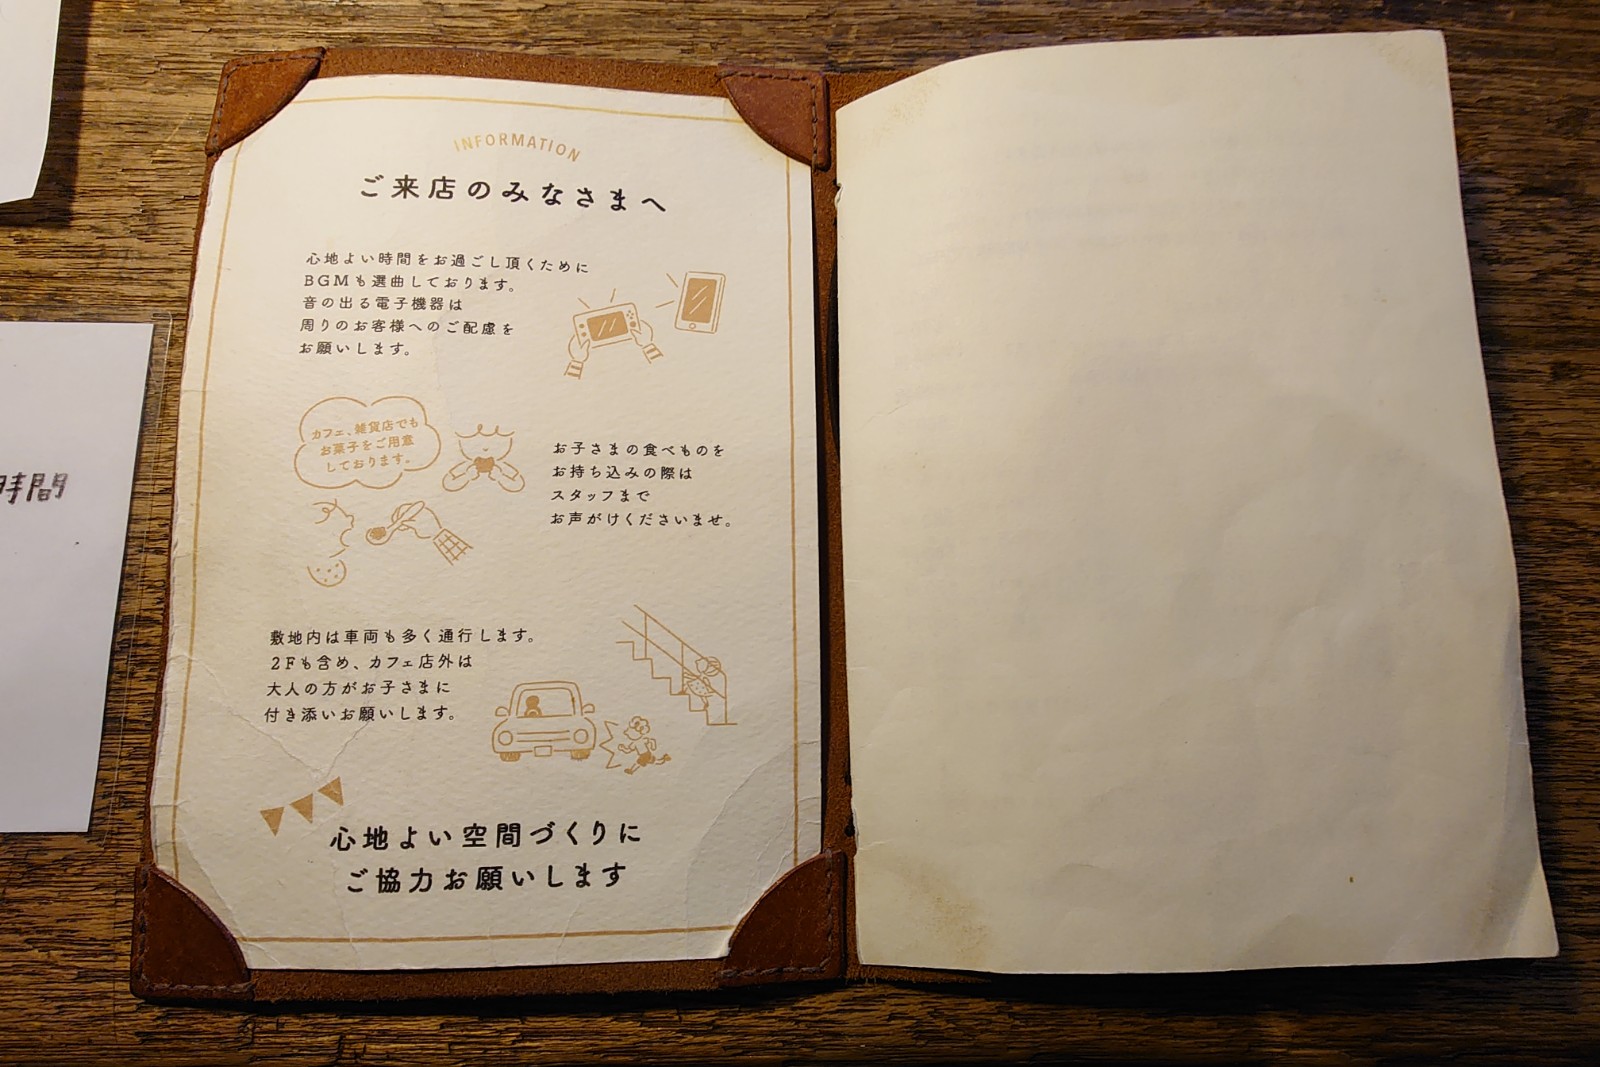 INFORMATION
ご来店のみなさまへ
心地よい時間をお過ごし頂くために
BGMも選曲しております。
音の出る電子機器は
周りのお客様へのご配慮を
お願いします。
カフェ、雑貨店でも
お菓子をご用意
しております。
お子さまの食べものを
お持ち込みの際は
スタッフまで
お声がけくださいませ。
敷地内は車両も多く通行します。
2Fも含め、カフェ店外は
大人の方がお子さまに
付き添いお願いします。
心地よい空間づくりに
ご協力お願いします
時間